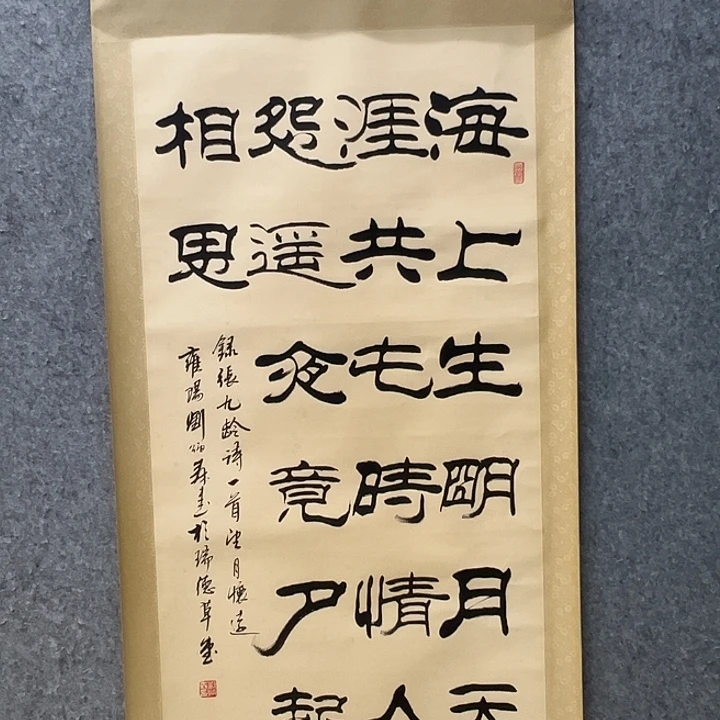 海上生明月天
涯共此時情人
怨遥夜竟夕起
相思
録張九龄詩一首望月懷遠
雍陽劉炳森書於瑞德草堂